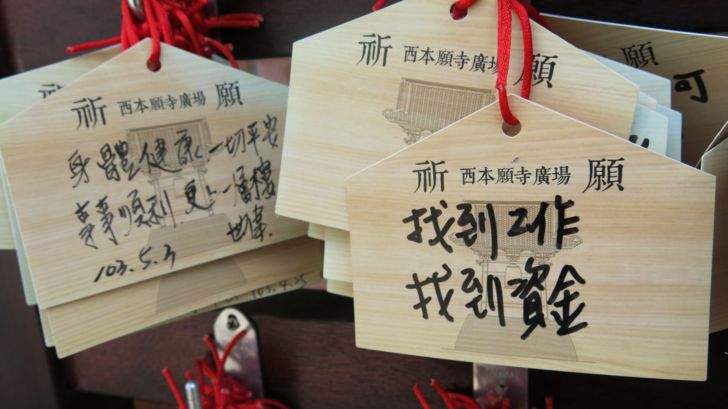 祈 西本願寺廣場 願
身體健康 一切平安
事事順利 更上一層樓
103.5.3
103.4.25
祈 西本願寺廣場 願
祈 西本願寺廣場 願
找到工作
找到資金
可